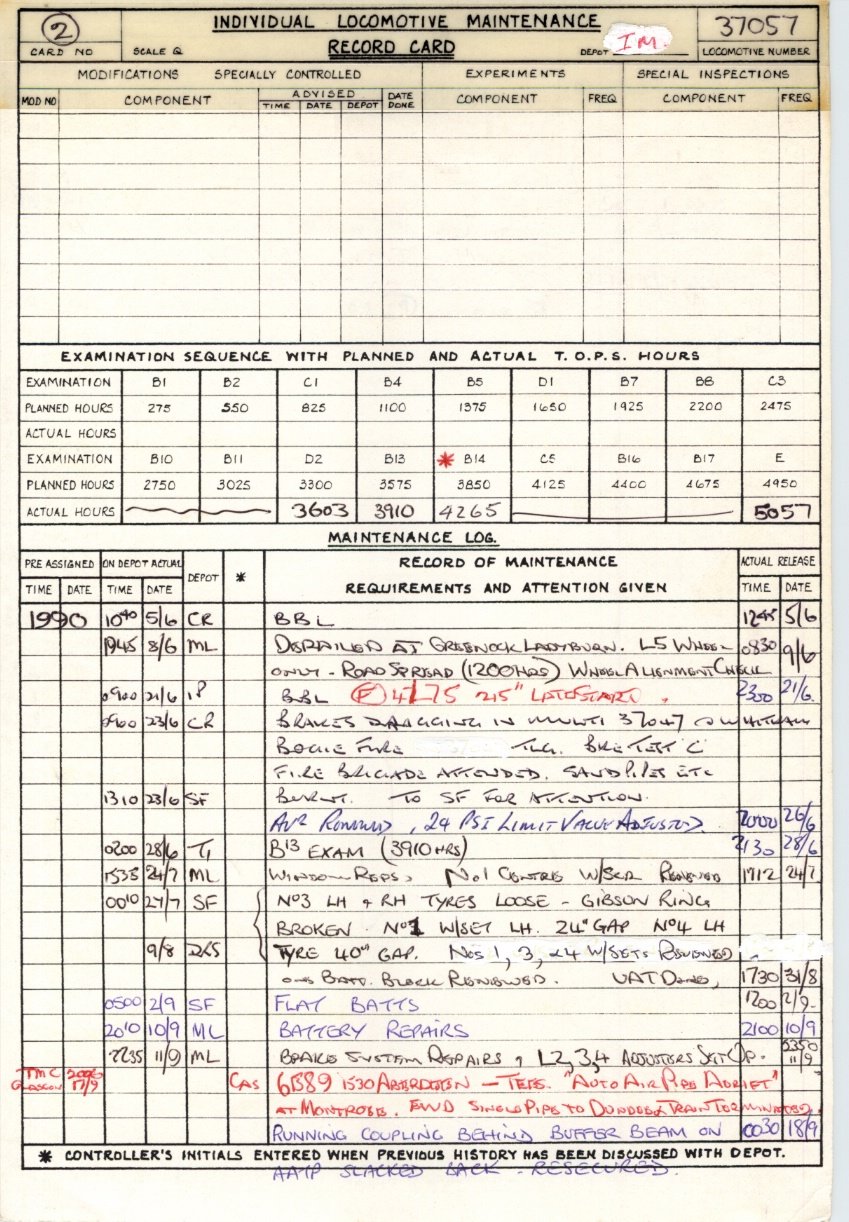 2 INDIVIDUAL LOCOMOTIVE MAINTENANCE 37057
CARD NO SCALE Q RECORD CARD DEPOT IM. LOCOMOTIVE NUMBER
MODIFICATIONS SPECIALLY CONTROLLED EXPERIMENTS SPECIAL INSPECTIONS
MOD NO COMPONENT ADVISED DATE DONE COMPONENT FREQ COMPONENT FREQ
TIME DATE DEPOT
EXAMINATION SEQUENCE WITH PLANNED AND ACTUAL T.O.P.S. HOURS
EXAMINATION B1 B2 C1 B4 B5 D1 B7 B8 C3
PLANNED HOURS 275 550 825 1100 1375 1650 1925 2200 2475
ACTUAL HOURS
EXAMINATION B10 B11 D2 B13 * B14 C5 B16 B17 E
PLANNED HOURS 2750 3025 3300 3575 3850 4125 4400 4675 4950
ACTUAL HOURS 3603 3910 4265 5057
MAINTENANCE LOG.
PRE ASSIGNED ON DEPOT ACTUAL DEPOT * RECORD OF MAINTENANCE ACTUAL RELEASE
TIME DATE TIME DATE REQUIREMENTS AND ATTENTION GIVEN TIME DATE
1990 1040 5/6 CR BBL 1245 5/6
1945 8/6 ML DERAILED AT GREENOCK LADYBURN. L5 WHEEL 0830 9/6
ONLY - ROAD SPREAD (1200HRS) WHEEL ALIGNMENT CHECK
0900 21/6 IP BBL (F) 215" LATE START. 2300 21/6.
0900 23/6 CR BRAKES DRAGGING IN MULTI 37047
BOGIE FIRE
FIRE BRIGADE ATTENDED. SAND PIPES ETC
1310 23/6 SF BURNT. TO SF FOR ATTENTION.
24 PSI LIMIT VALVE ADJUSTED. 2000 26/6
0200 28/6 TI B13 EXAM (3910 HRS) 2130 28/6
1535 24/7 ML WINDOW REPS. No1 CENTRE W/SCR RENEWED 1712 24/7
0010 27/7 SF No3 LH & RH TYRES LOOSE - GIBSON RING
BROKEN. No1 W/SET LH. 24" GAP No4 LH
9/8 TYRE 40" GAP. Nos 1, 3, &4 W/SETS RENEWED
ONE BATT. BLOCK RENEWED. VAT DONE, 1730 31/8
0500 2/9 SF FLAT BATTS 1200 2/9
2010 10/9 ML BATTERY REPAIRS 2100 10/9
2235 11/9 ML BRAKE SYSTEM REPAIRS, L2,3,4 ADJUSTERS SET UP. 11/9
TMC GLASGOW 17/9 CAS 6B89 1530 ABERDEEN - TEES. "AUTO AIR PIPE ADRIFT"
AT MONTROSE. FWD SINGLE PIPE TO DUNDEE & TRAIN TERMINATED.
RUNNING COUPLING BEHIND BUFFER BEAM ON 0030 18/9
* CONTROLLER'S INITIALS ENTERED WHEN PREVIOUS HISTORY HAS BEEN DISCUSSED WITH DEPOT.
AATP SLACKED BACK - RESECURED.